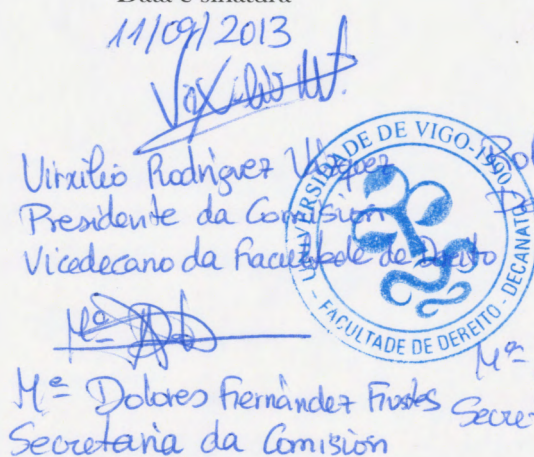 Data e sinatura
11/09/2013
Virxilio Rodríguez Vázquez
Presidente da Comisión
Vicedecano da Facultade de Dereito
UNIVERSIDADE DE VIGO-1990
FACULTADE DE DEREITO - DECANATO
Mª
Mª Dolores Fernández
Secretaria da Comisión
Mª